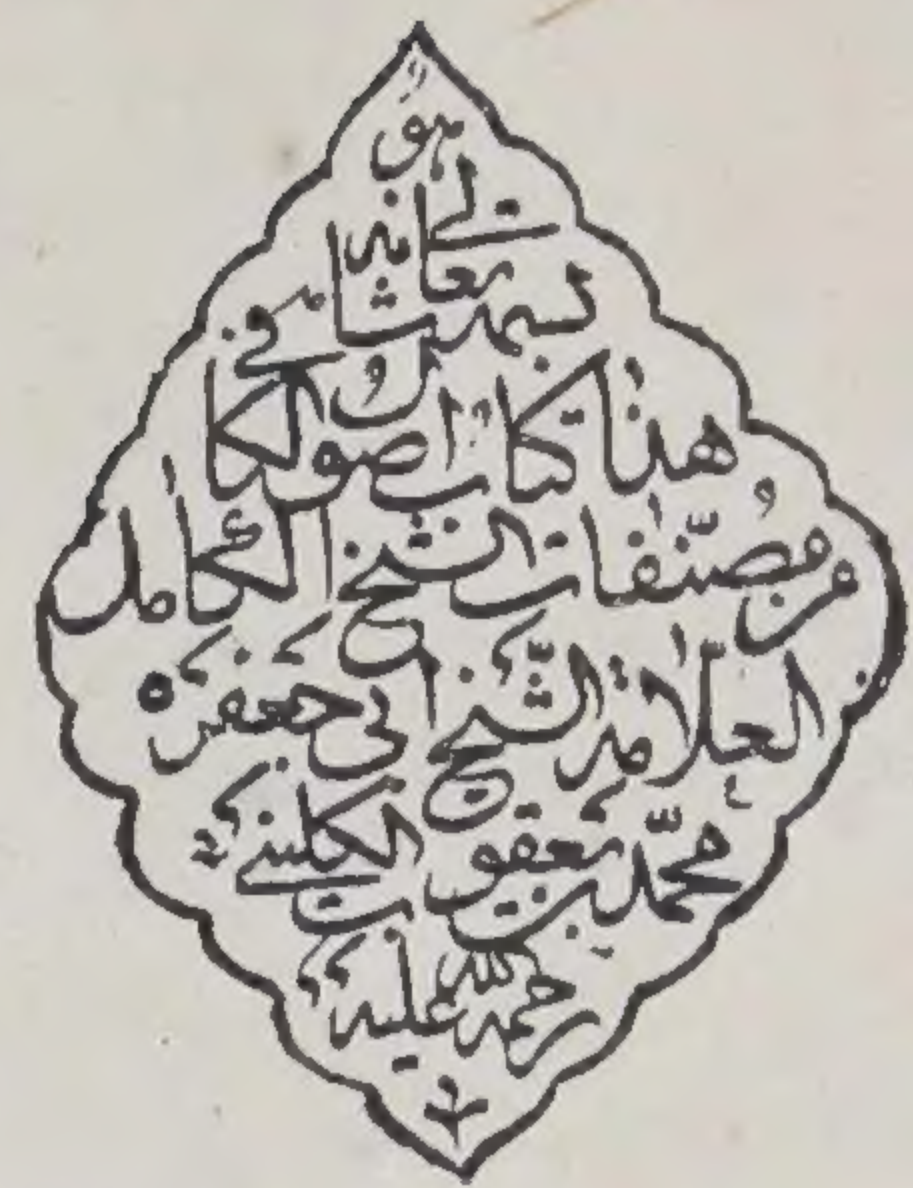 هو
بسمه تعالى شانه
هذا كتاب اصول الكافى
من مصنفات الشيخ الكامل
العلامة الشيخ ابى جعفر
محمد بن يعقوب الكلينى
رحمة الله عليه